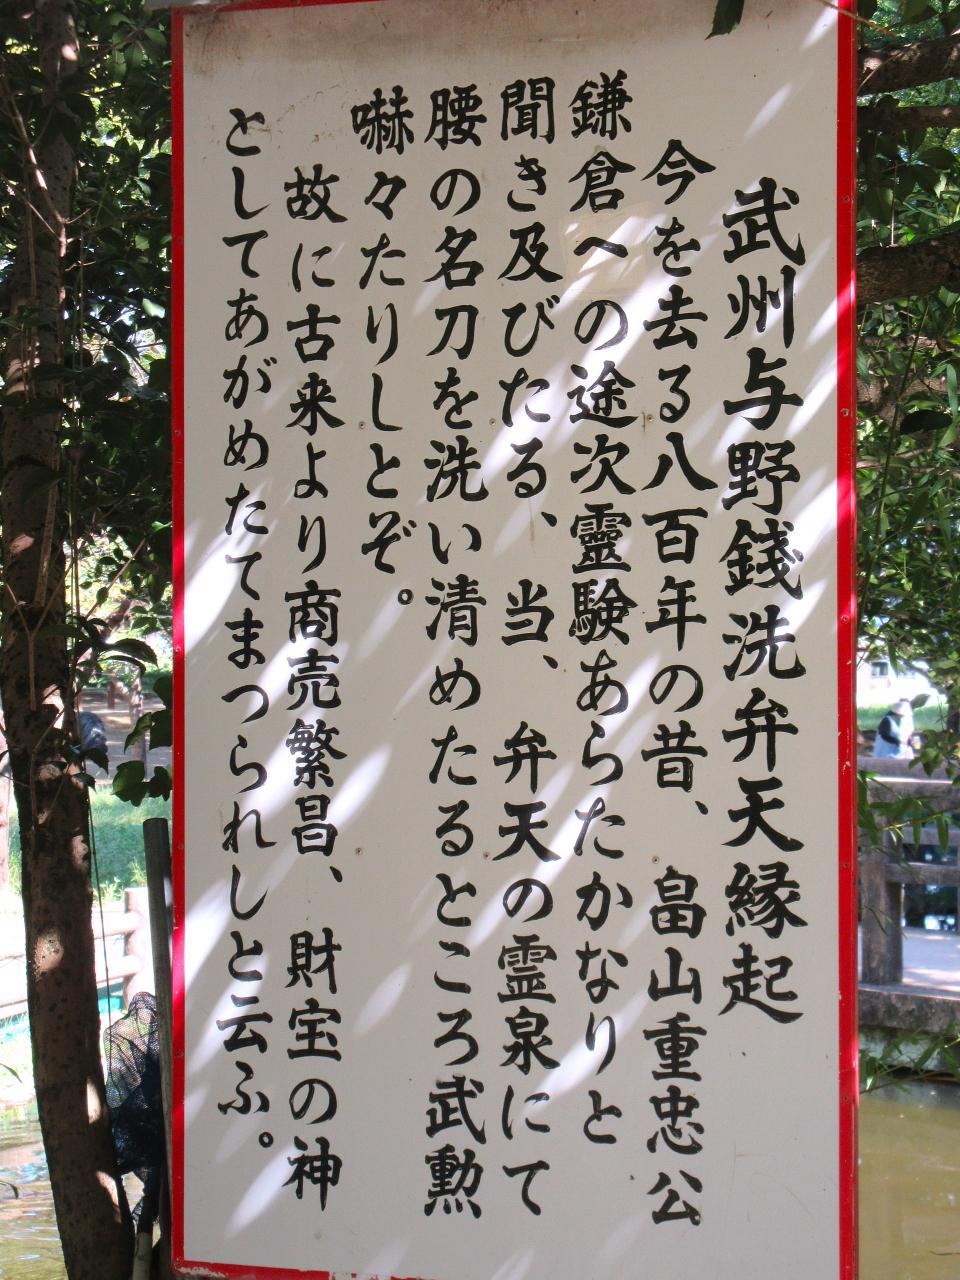 武州与野錢洗弁天縁起
今を去る八百年の昔、畠山重忠公
鎌倉への途次靈験あらたかなりと
聞き及びたる、当、弁天の霊泉にて
腰の名刀を洗い清めたるところ武勲
嚇々たりしとぞ。
故に古来より商売繁昌、財宝の神
としてあがめたてまつられしと云ふ。